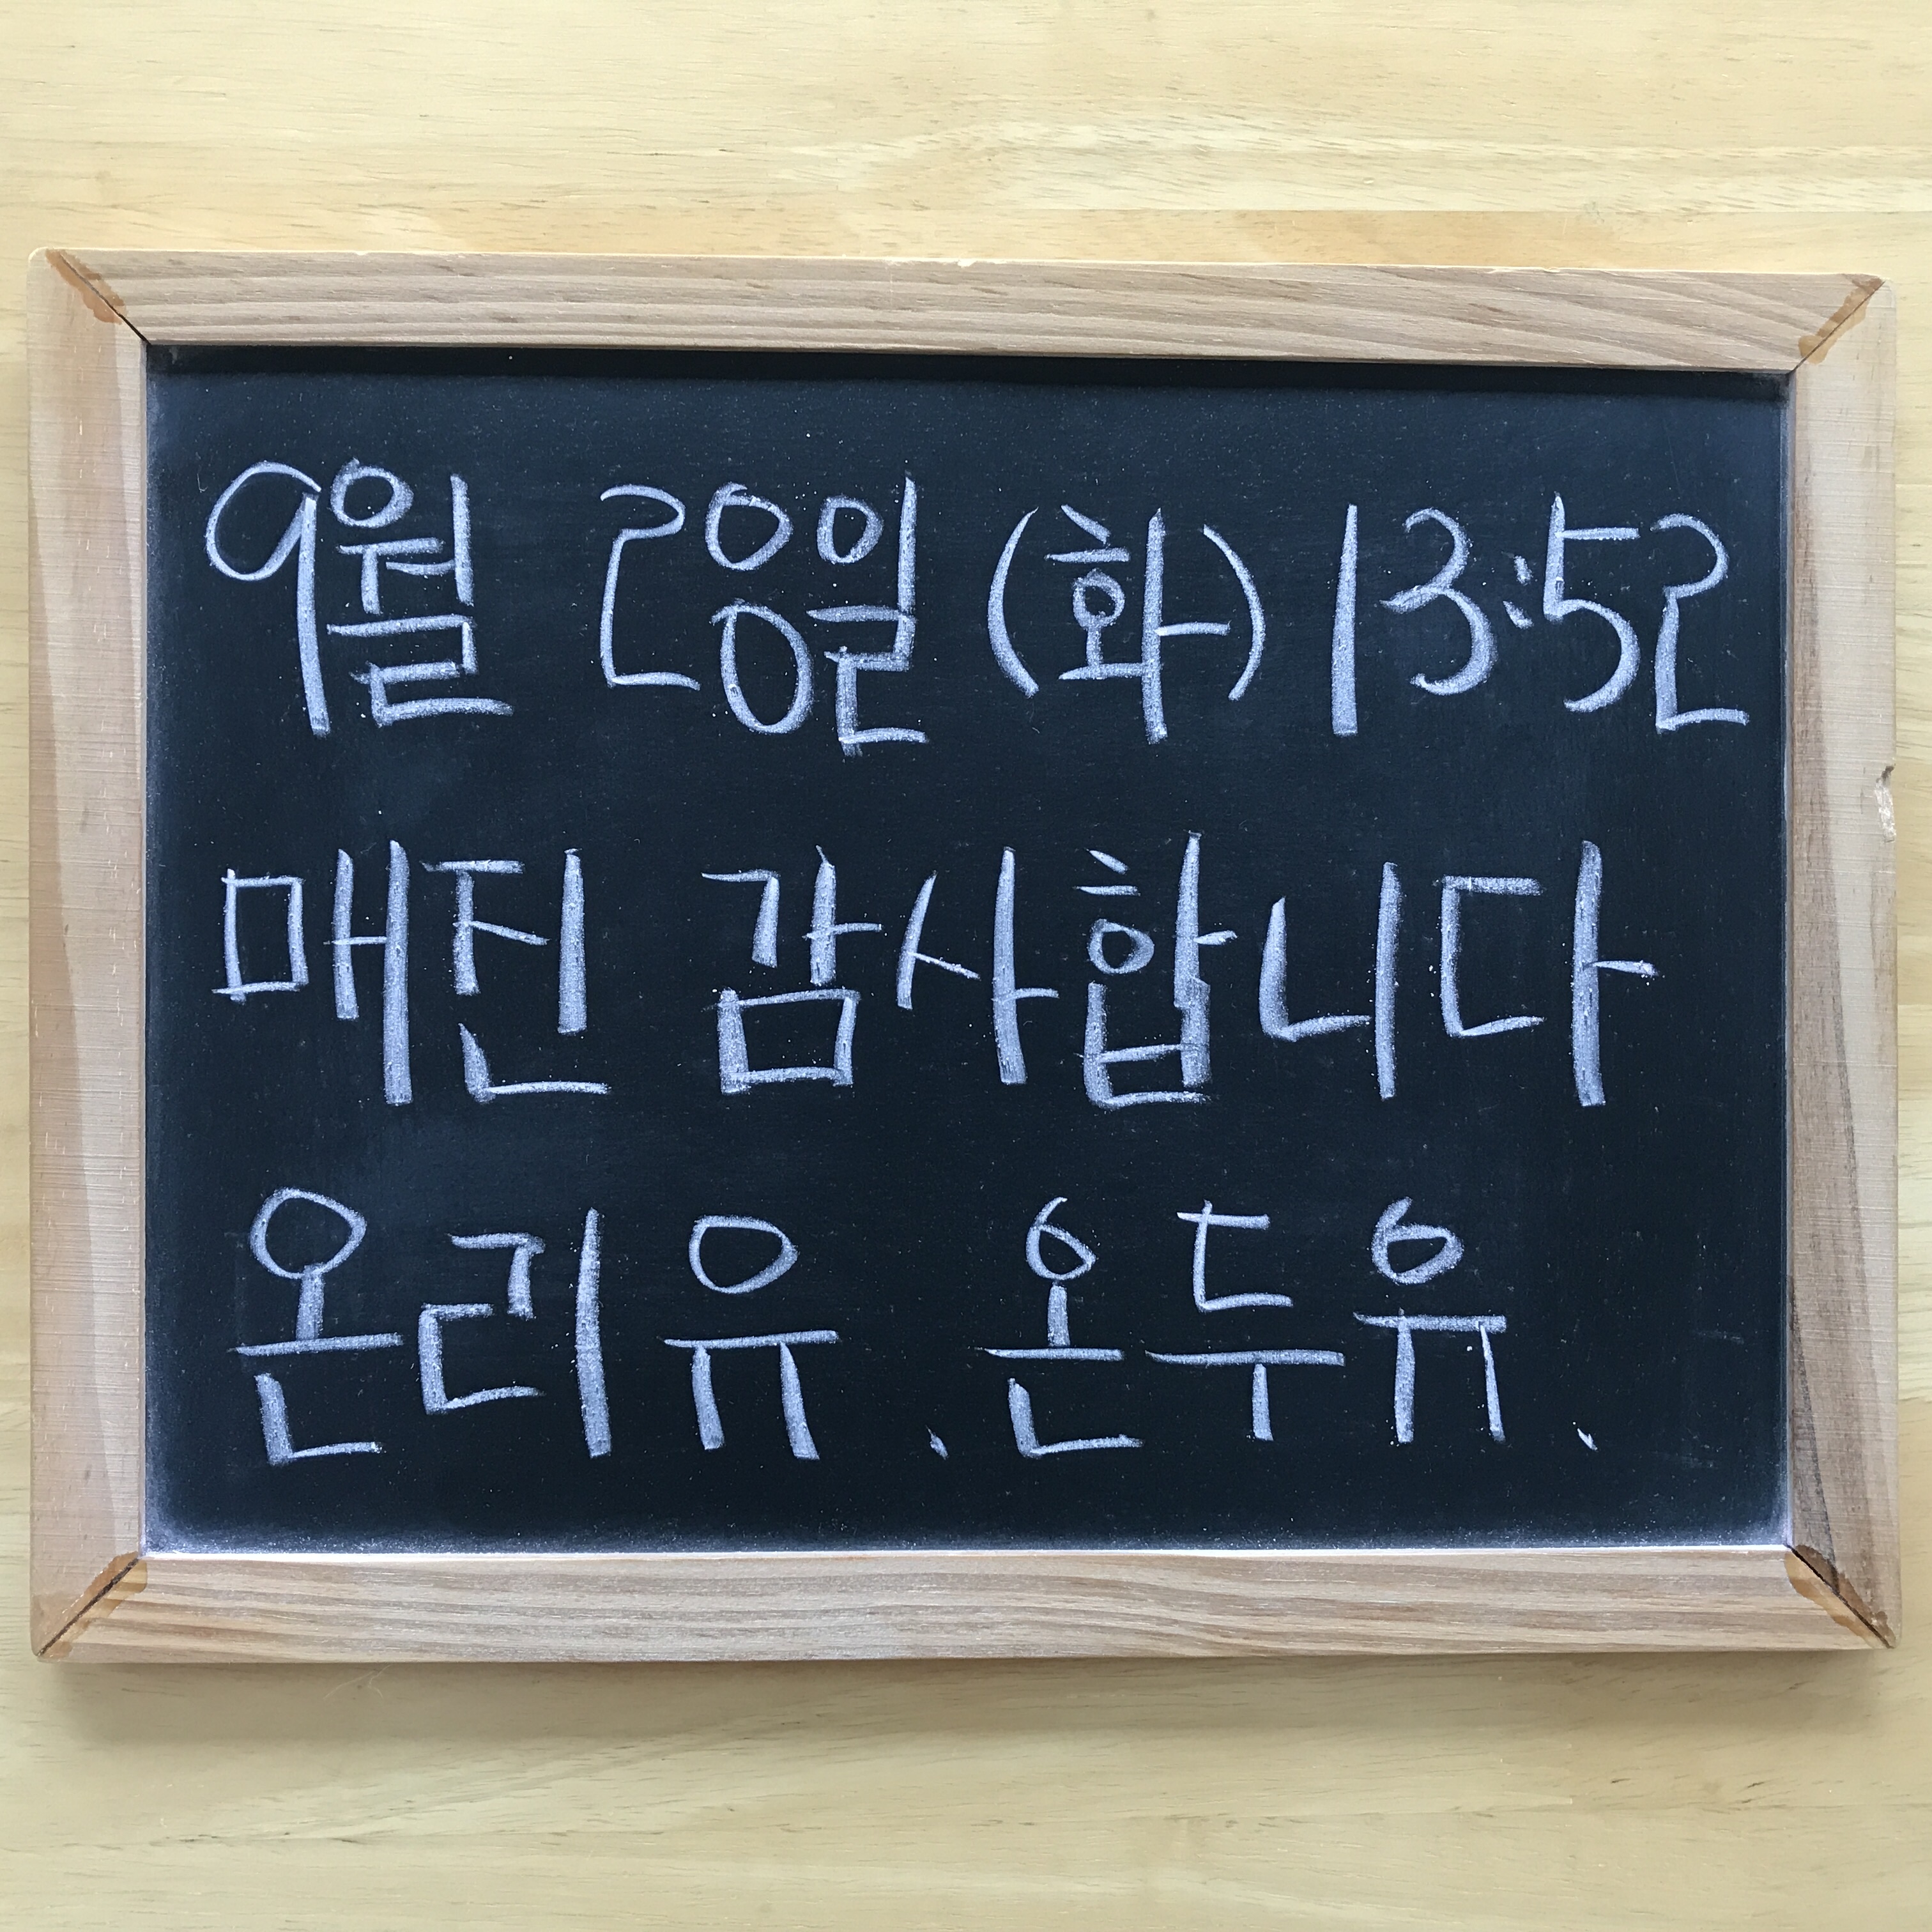 9월 28일 (화) 13:52
매진 감사합니다
온리유. 온두유.